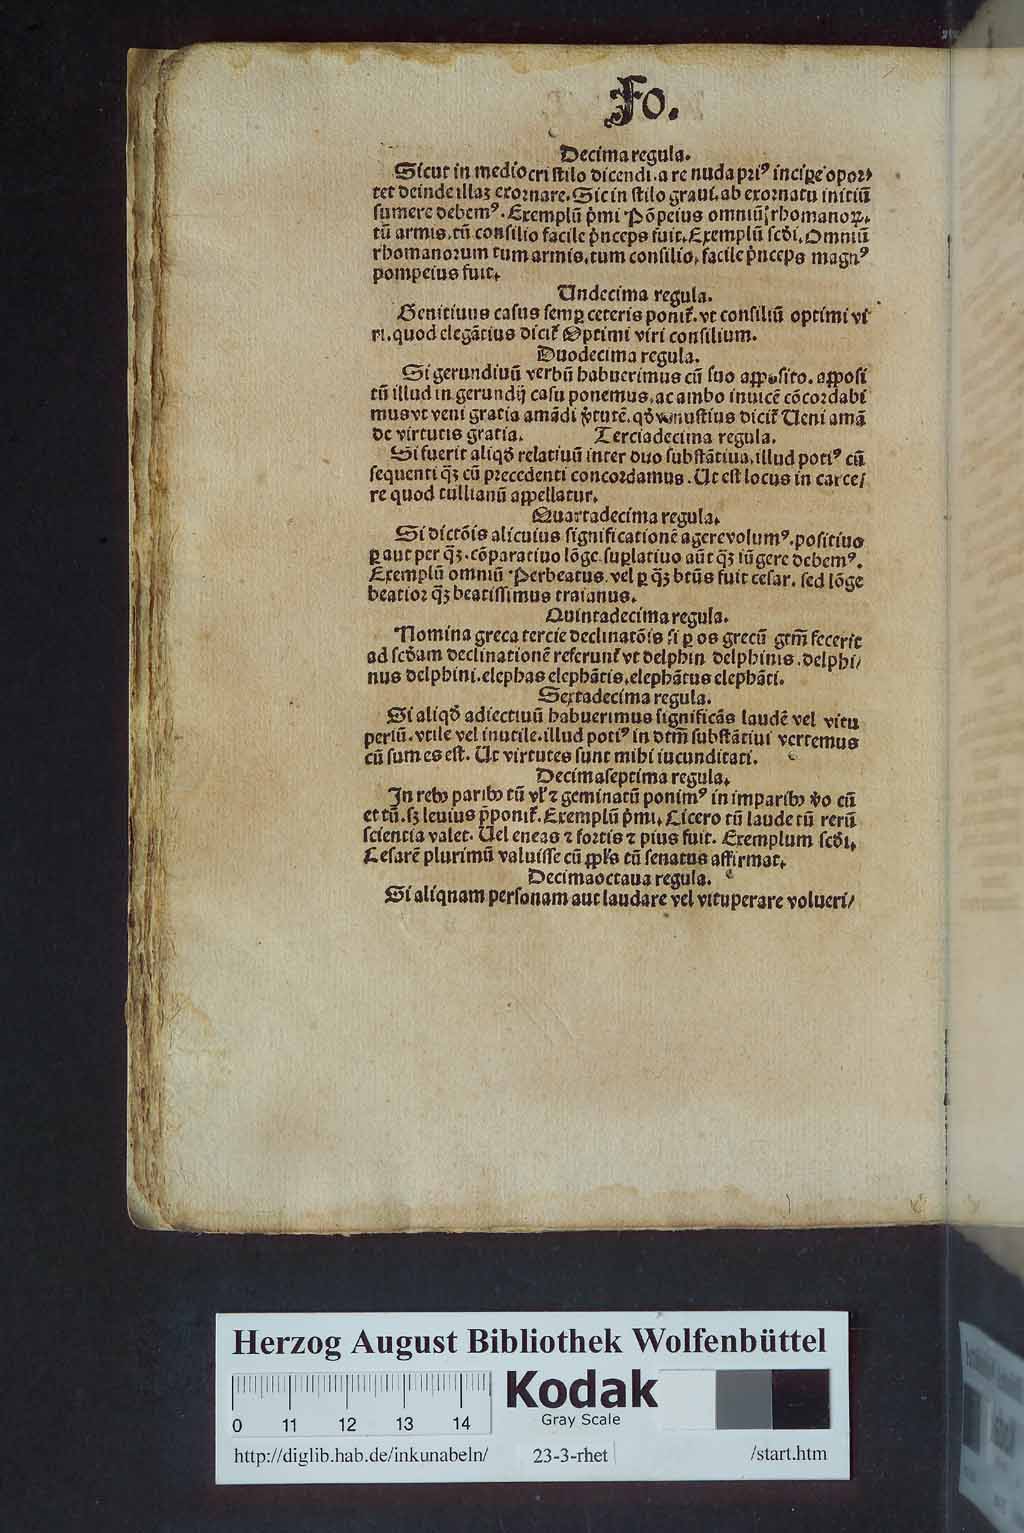 Fo.
Decima regula.
Sicut in mediocri stilo dicendi. a re nuda pri⁹ incipe opor⸗
tet deinde illaz exornare. Sic in stilo graui. ab exornatu initiū
sumere debem⁹. Exemplū p̄mi Pōpeius omniū rhomanoꝝ.
tū armis. tū consilio facile p̄nceps fuit. Exemplū scd̄i. Omniū
rhomanorum tum armis. tum consilio. facile p̄nceps magn⁹
pompeius fuit.
Undecima regula.
Genitiuus casus semꝑ ceteris ponit᷑. vt consiliū optimi vi
ri. quod elegātius dicit᷑ Optimi viri consilium.
Duodecima regula.
Si gerundiuū verbū habuerimus cū suo apposito. apposi
tū illud in gerundij casu ponemus. ac ambo inuicē cōcordabi
mus vt veni gratia amādi v̓tutē. qd̄ venustius dicit᷑ Ueni amā
de virtutis gratia. Terciadecima regula.
Si fuerit aliqd̄ relatiuū inter duo substātiua. illud poti⁹ cū
sequenti qꝫ cū precedenti concordamus. Ut est locus in carce/
re quod tullianū appellatur.
Quartadecima regula.
Si dictōis alicuius significationē agere volum⁹. positiuo
ꝑ aut per qꝫ. cōparatiuo lōge. suꝑlatiuo aūt qꝫ iūgere debem⁹.
Exemplū omniū Perbeatus. vel ꝑ qꝫ btūs fuit cesar. sed lōge
beatior qꝫ beatissimus traianus.
Quintadecima regula.
Nomina greca tercie declinatōis si ꝑ os grecū gtm̄ fecerit
ad scd̄am declinationē referunt᷑ vt delphin delphinis. delphi/
nus delphini. elephas elephātis. elephātus elephāti.
Sextadecima regula.
Si aliqd̄ adiectiuū habuerimus significās laudē vel vitu
periū. vtile vel inutile. illud poti⁹ in dtm̄ substātiui vertemus
cū sum es est. Ut virtutes sunt mihi iucunditati.
Decimaseptima regula.
In rebꝰ paribꝰ tū vl̓ ⁊ geminatū ponim⁹ in imparibꝰ v̓o cū
et tū. sꝫ leuius p̄ponit᷑. Exemplū p̄mi. Cicero tū laude tū rerū
scientia valet. Uel eneas ⁊ fortis ⁊ pius fuit. Exemplum scd̄i.
Cesarē plurimū valuisse cū ppl̓s tū senatus affirmat.
Decimaoctaua regula.
Si aliqnam personam aut laudare vel vituperare volueri/
Herzog August Bibliothek Wolfenbüttel
Kodak
Gray Scale
0 11 12 13 14
http://diglib.hab.de/inkunabeln/ 23-3-rhet /start.htm